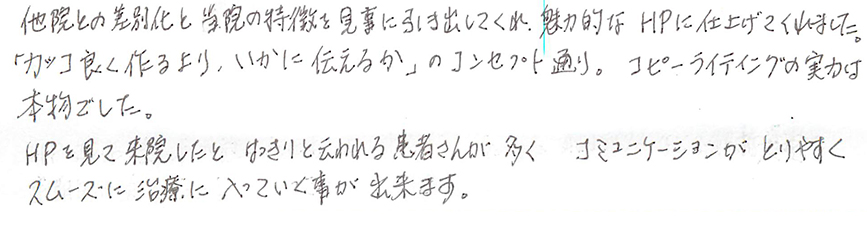 他院との差別化と当院の特徴を見事に引き出してくれ、魅力的なHPに仕上げてくれました。
「カッコ良く作るより、いかに伝えるか」のコンセプト通り。 コピーライティングの実力は
本物でした。
HPを見て来院したとはっきりと云われる患者さんが多く コミュニケーションがとりやすく
スムーズに治療に入っていく事が出来ます。